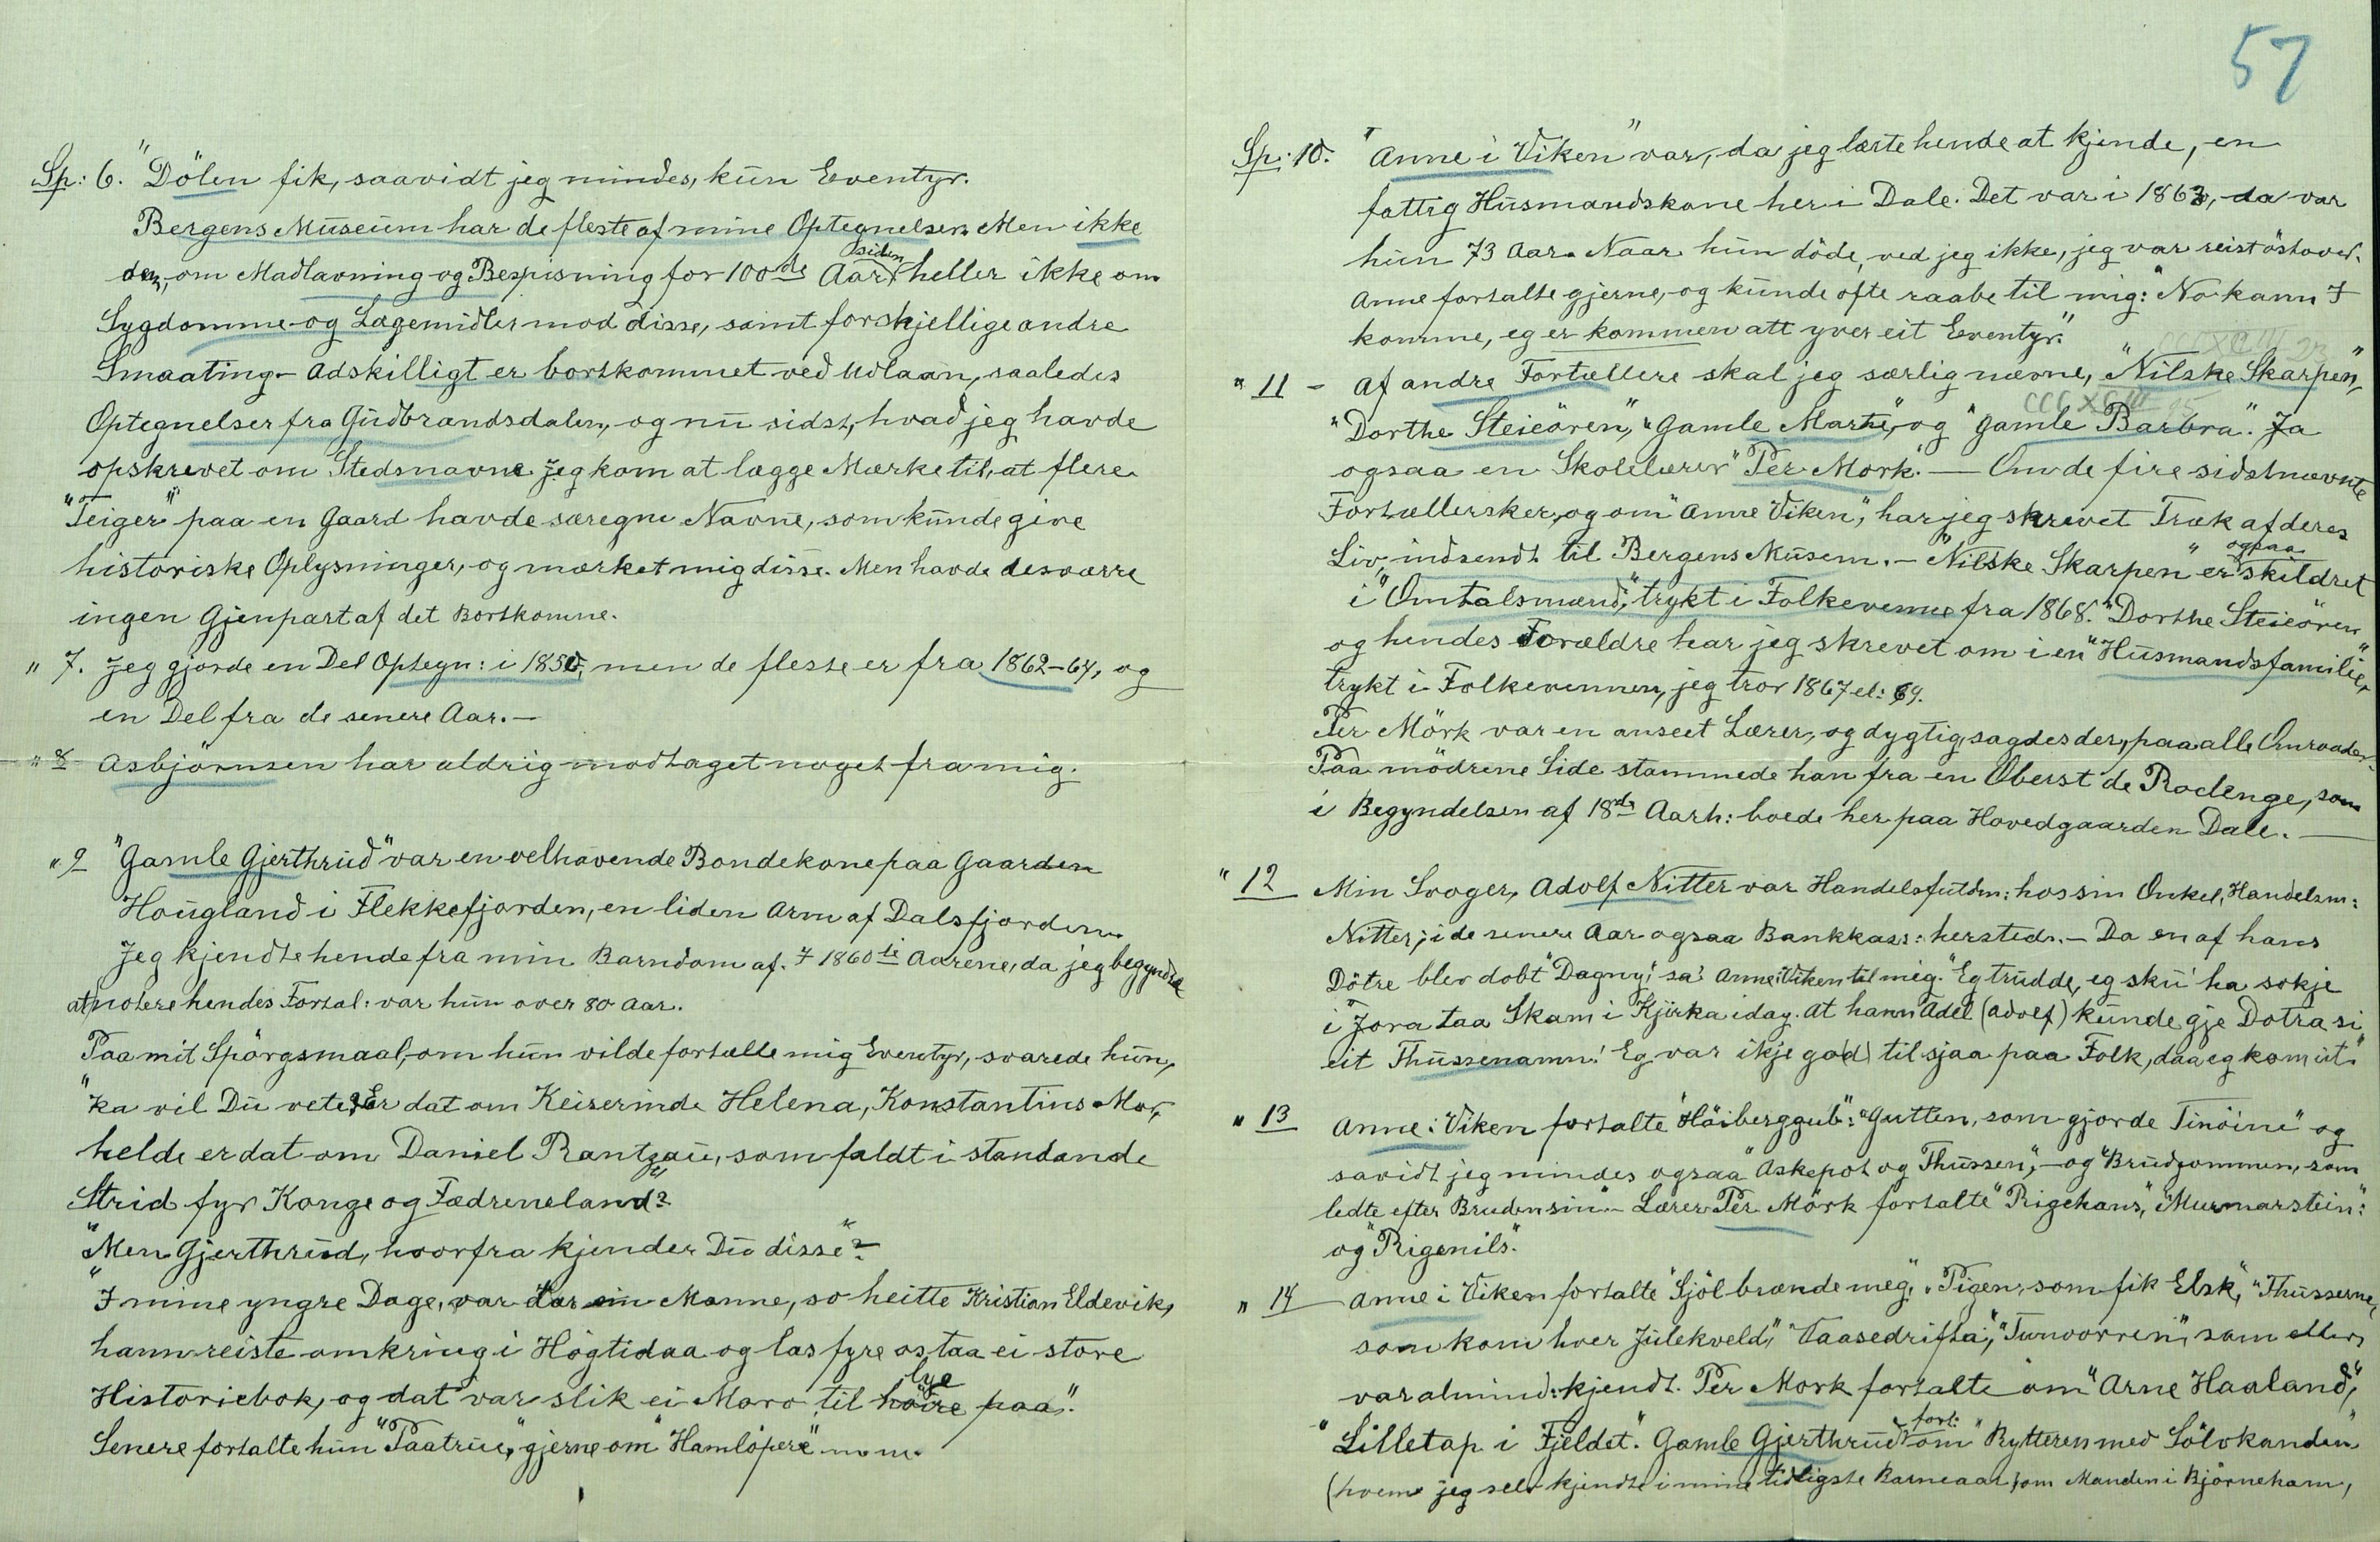 Sp: 6. "Dölen fik, saavidt jeg mindes, kun Eventyr.
Bergens Museum har de fleste af mine Optegnelser. Men ikke
den, om Madlavning og Bespisning for 100de Aar siden, heller ikke om
Sygdomme og Lægemidler mod disse, samt forskjellige andre
Smaating. – Adskilligt er bortkommet ved Udlaan, saaledes
Optegnelser fra Gudbrandsdalen, og nu sidst, hvad jeg havde
opskrevet om Stedsnavne. Jeg kom at lægge Mærke til, at flere
"Teiger" paa en Gaard havde særegne Navne, som kunde give
historiske Oplysninger, og mærket mig disse. Men havde desværre
ingen Gjenpart af det Bortkomne.
" 7. Jeg gjorde en Del Optegn: i 1850, men de fleste er fra 1862–64, og
en Del fra de senere Aar. –
" 8 Asbjörnsen har aldrig modtaget noget fra mig.
" 9 "Gamle Gjerthrud" var en velhavende Bondekone paa Gaarden
Hougland i Flekkefjorden, en liden Arm af Dalsfjorden.
Jeg kjendte hende fra min Barndom af. I 1860ti Aarene, da jeg begyndte
at notere hendes Fortal: var hun over 80 Aar.
Paa mit Spörgsmaal, om hun vilde fortælle mig Eventyr, svarede hun,
"Ka vil Du vete? Er dat om Keiserinde Helena, Konstantins Mor,
helde er dat om Daniel Rantzau, som faldt i standande
Strid fyr Konge og Fædreneland"?
"Men Gjerthrud, hvorfra kjender Du disse"?
"I mine yngre Dage, var dar ein Manne, so heitte Kristian Eldevik,
hann reiste omkring i Högtidaa og las fyre os taa ei store
Historiebok, og dat var slik ei Moro til höire lye paa".
Senere fortalte hun "Paatrue", gjerne om "Hamlöpere" m.m.
57
Sp: 10. "Anne i Viken" var, da jeg lærte hende at kjende, en
fattig Husmandskone her i Dale. Det var i 1863, da var
hun 73 Aar. Naar hun döde, ved jeg ikke, jeg var reist östover.
Anne fortalte gjerne, og kunde ofte raabe til mig: "No kann I
komme, eg er kommen att yver eit Eventyr."
" 11 – Af andre Fortællere skal jeg særlig nævne, "Nilske Skarpen",
"Dorthe Steieören", "Gamle Marte", og "Gamle Barbra". Ja
ogsaa en Skolelærer "Per Mörk". — Om de fire sidstnævnte
Fortællersker, og om "Anne Viken", har jeg skrevet Træk af deres
Liv, indsendt til Bergens Musem. – "Nilske Skarpen" er ogsaa skildret
i "Omtalsmænd", trykt i Folkevenne fra 1868. "Dorthe Steieören"
og hendes Forældre har jeg skrevet om i en "Husmandsfamilie",
trykt i Folkevennen, jeg tror 1867 el: 69.
Per Mörk var en anseet Lærer, og dygtig, sagdes der, paa alle Omraader.
Paa mödrene Side stammede han fra en Oberst de Rodenge, som
i Begyndelsen af 18de Aarh: boede her paa Hovedgaarden Dale. —
" 12 Min Svoger, Adolf Nitter var Handelsfuldm: hos sin Onkel, Handelsm:
Nitter, i de senere Aar ogsaa Bankkass: hersteds. – Da en af hans
Dötre blev döbt "Dagny", sa' Anne i Viken til mig. "Eg trudde, eg sku' ha sokje
i Jora taa Skam i Kjirka idag. At hann Adel (Adolf) kunde gje Dotra si
eit Thussenamn! Eg var ikje go(d) til sjaa paa Folk, daa eg kom ut."
" 13 Anne i Viken fortalte "Höiberggub": "Gutten, som gjorde Tinöine" og
savidt jeg mindes ogsaa "Askepot og Thussen", – og "Brudgommen, som
ledte efter Bruden sin". – Lærer Per Mörk fortalte "Rigehans", "Murmarstein":
og "Rigenils".
" 14 Anne i Viken fortalte "Sjöl brænde meg", "Pigen, som fik Elsk", "Thusserne,
som kom hver Julekveld", "Vaasedrifta", "Tunvorren", som ellers
var almind: kjendt. Per Mörk fortalte om "Arne Haaland",
"Lilletap i Fjeldet". Gamle Gjerthrud fort: om "Rytteren med Sölvkanden"
(hvem jeg selv kjendte i mine tidligste Barneaar) om Manden i Björneham,